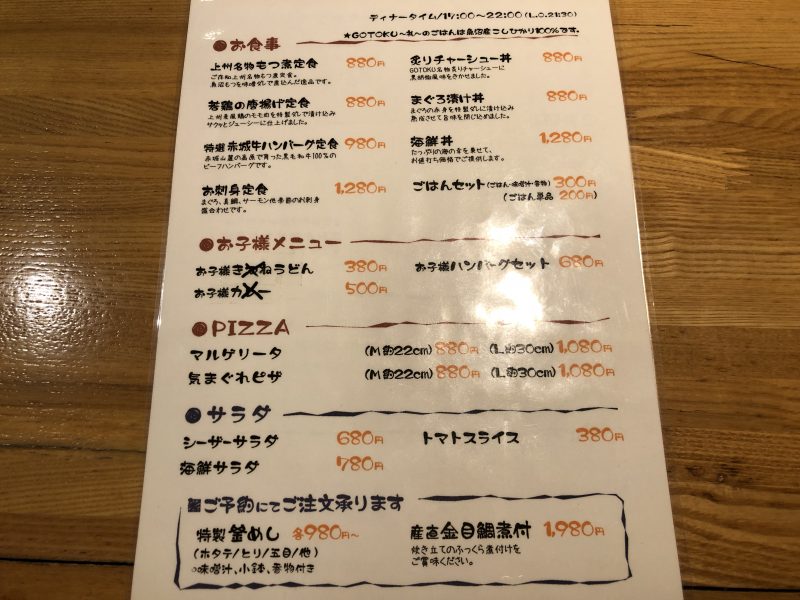 ディナータイム/17:00〜22:00(L.O.21:30)
★GOTOKU〜礼〜のごはんは魚沼産こしひかり100%です。
お食事
上州名物もつ煮定食 880円
ご存知上州名物もつ煮定食。
魚沼もつを味噌ダレで煮込んだ逸品です。
炙りチャーシュー丼 880円
GOTOKU名物炙りチャーシューに
黒胡椒風味をきかせました。
若鶏の唐揚げ定食 880円
上州産風鶏のモモ肉を特製ダレで漬け込み
サクッとジューシーに仕上げました。
まぐろ漬け丼 880円
まぐろの赤身を特製ダレに漬け込み
熟成させて旨味を閉じ込めました。
特選赤城牛ハンバーグ定食 980円
赤城山麓の高原で育った黒毛和牛100%の
ビーフハンバーグです。
海鮮丼 1,280円
たっぷりの海の幸を乗せて、
お値打ち価格でご提供します。
お刺身定食 1,280円
まぐろ、真鯛、サーモン他季節のお刺身
盛合わせです。
ごはんセット(ごはん・味噌汁・香物) 300円
(ごはん単品 200円)
お子様メニュー
お子様きつねうどん 380円
お子様ハンバーグセット 680円
お子様カレー 500円
PIZZA
マルゲリータ (M約22cm) 880円 (L約30cm) 1,080円
気まぐれピザ (M約22cm) 880円 (L約30cm) 1,080円
サラダ
シーザーサラダ 680円
トマトスライス 380円
海鮮サラダ 780円
ご予約にてご注文承ります
特製釜めし 各980円〜
(ホタテ/とり/五目/他)
○味噌汁、小鉢、香物付き
産直金目鯛煮付 1,980円
炊き立てのふっくら煮付けを
ご賞味ください。